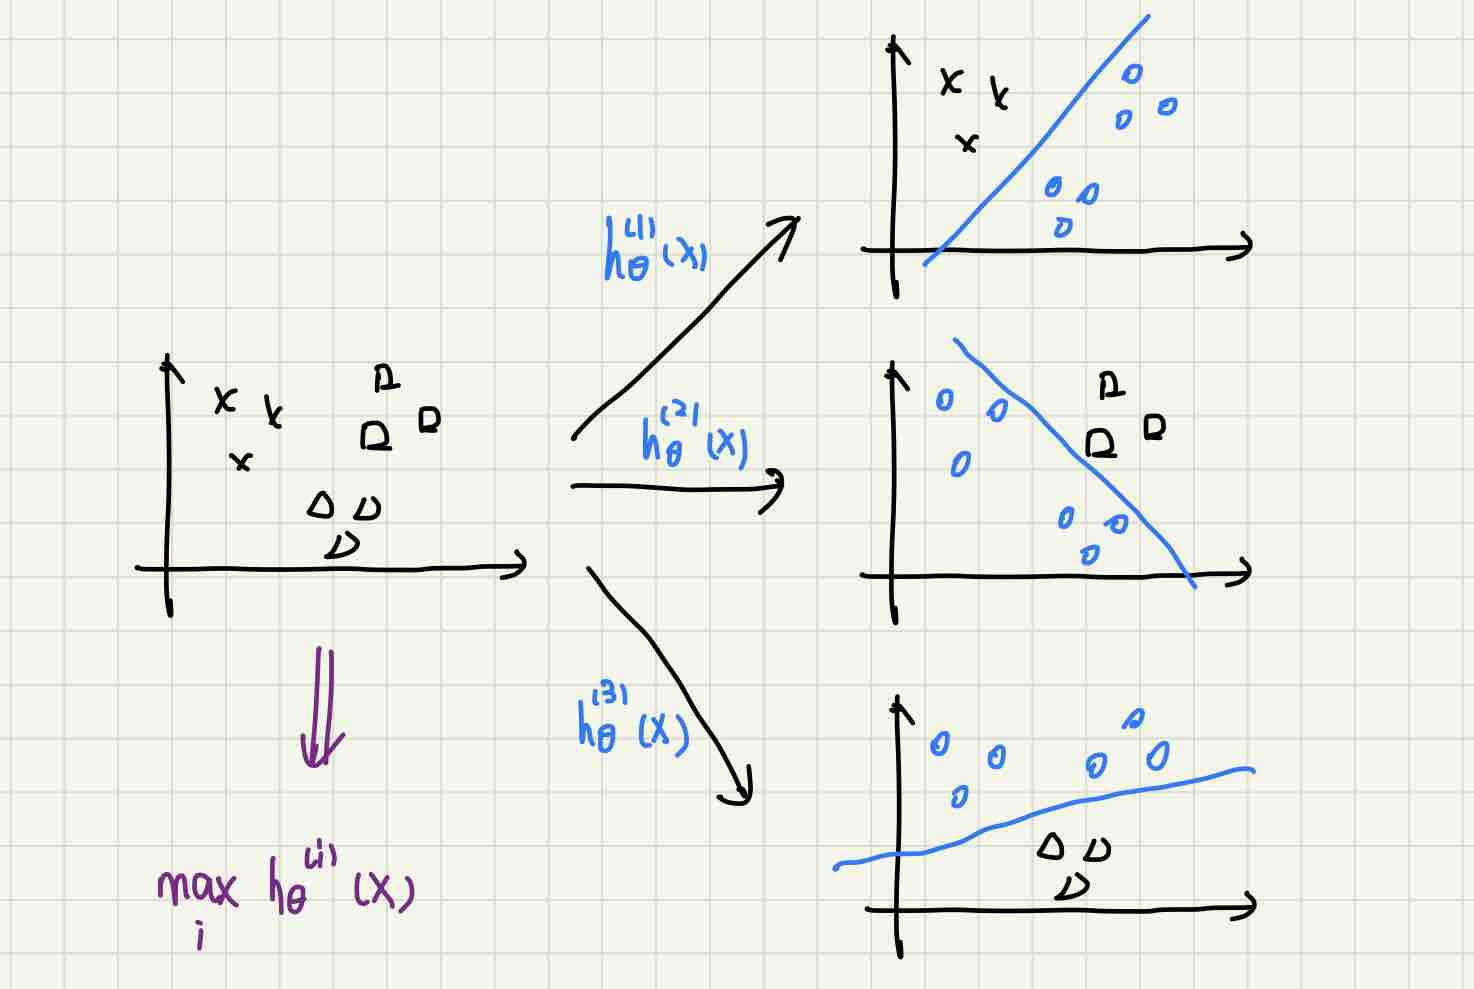 h_θ^(1)(x)
h_θ^(2)(x)
h_θ^(3)(x)
max h_θ^(i)(x)
i